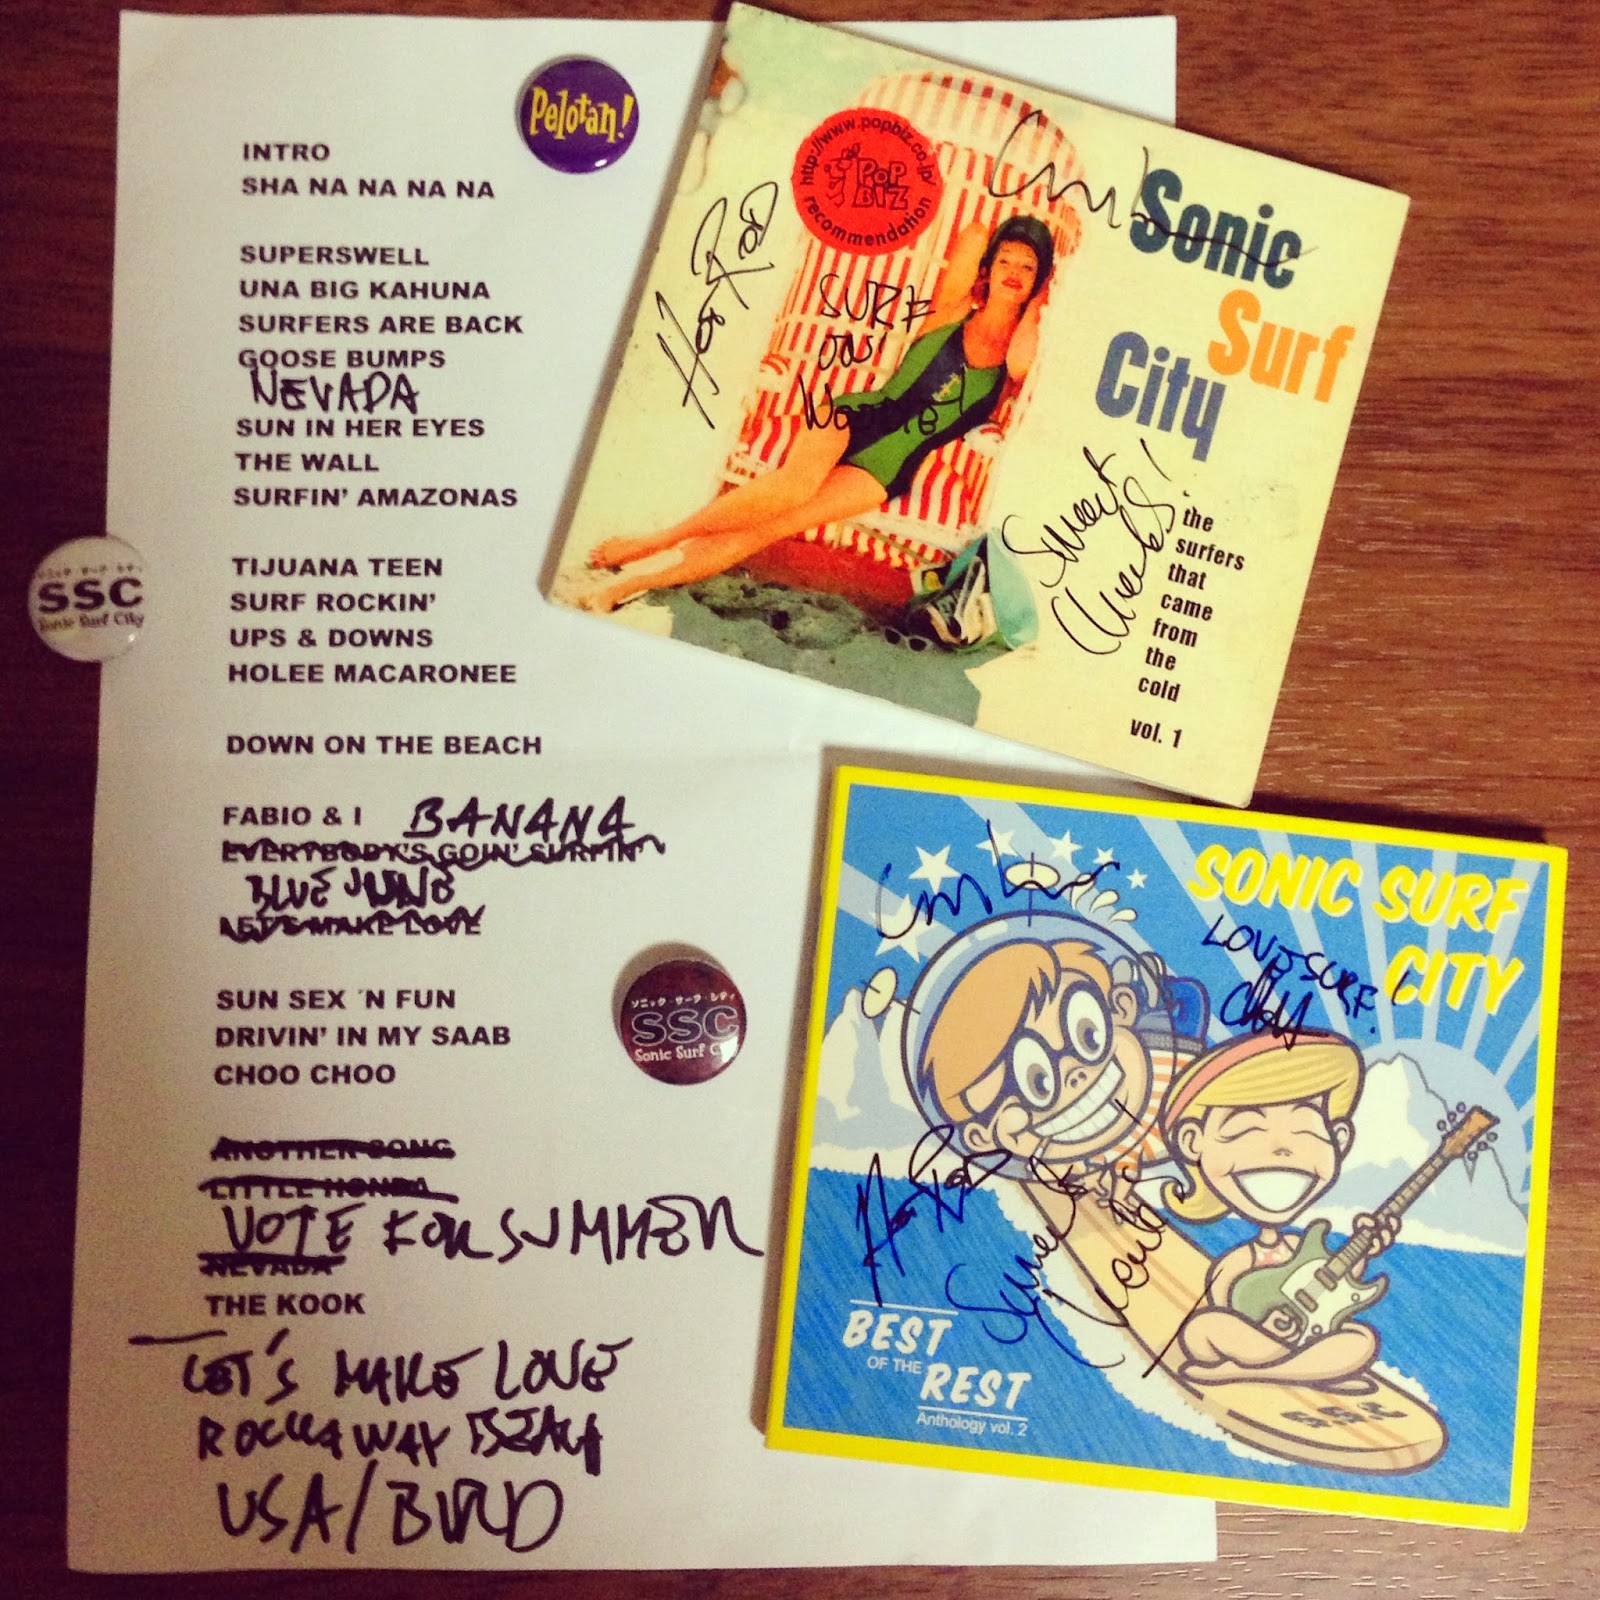 Pelotan!
INTRO
SHA NA NA NA NA
SUPERSWELL
UNA BIG KAHUNA
SURFERS ARE BACK
GOOSE BUMPS
NEVADA
SUN IN HER EYES
THE WALL
SURFIN' AMAZONAS
TIJUANA TEEN
SURF ROCKIN'
UPS & DOWNS
HOLEE MACARONEE
DOWN ON THE BEACH
FABIO & I BANANA
EVERYBODY'S GOIN' SURFIN'
BLUE JUNE
LET'S MAKE LOVE
SUN SEX ´N FUN
DRIVIN' IN MY SAAB
CHOO CHOO
ANOTHER SONG
LITTLE HONDA
VOTE FOR SUMMER
NEVADA
THE KOOK
LET'S MAKE LOVE
ROCKAWAY BEACH
USA/BIRD
ソニック・サーフ・シティ
SSC
Sonic Surf City
ソニック・サーフ・シティ
SSC
Sonic Surf City
http://www.popbiz.co.jp/
POP
BIZ
recommendation
Sonic
Surf
City
HOT ROD
SURF
Sweet
Cheeks!
the
surfers
that
came
from
the
cold
vol. 1
SONIC SURF
CITY
LOVE SURF!
HOT ROD
Sweet
BEST
OF THE
REST
Anthology vol. 2
S.S.C